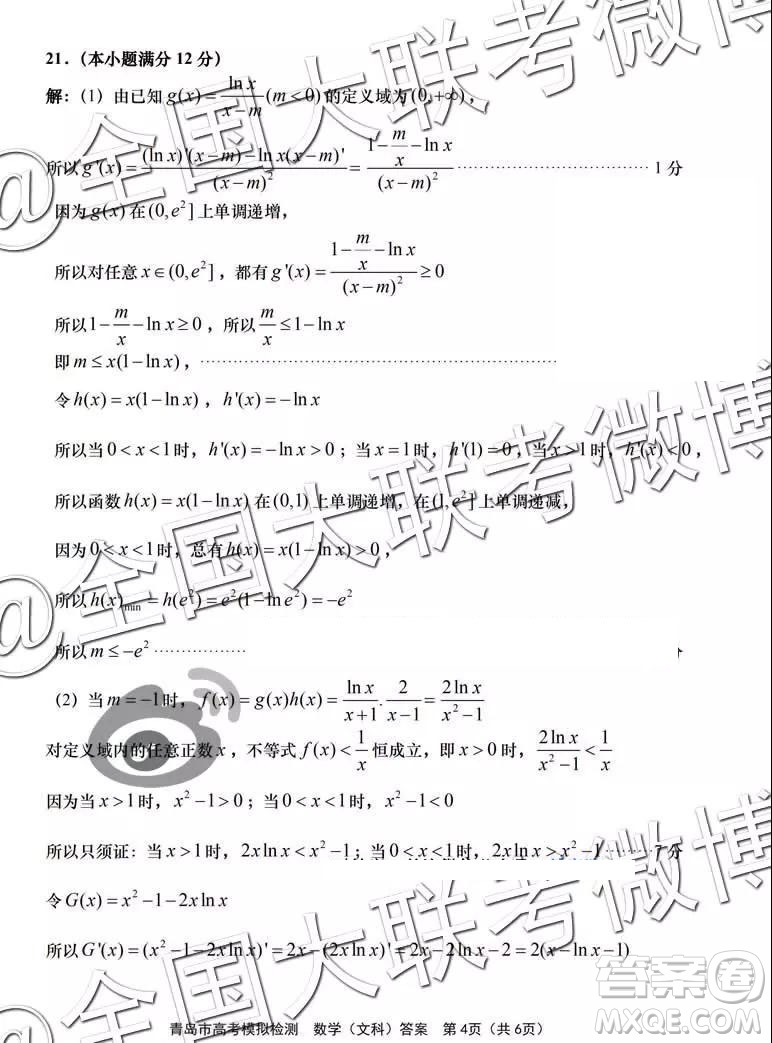 21.（本小题满分12分）
解：(1) 由已知 g(x)=\frac{\ln x}{x-m}(m<0)的定义域为(0,+∞)，
所以 g'(x)=\frac{(\ln x)'(x-m)-\ln x(x-m)'}{(x-m)^2}=\frac{1-\frac{m}{x}-\ln x}{(x-m)^2} ………… 1分
因为 g(x) 在 (0,e^2] 上单调递增，
所以对任意 x∈(0,e^2]，都有 g'(x)=\frac{1-\frac{m}{x}-\ln x}{(x-m)^2}≥0
所以 1-\frac{m}{x}-\ln x≥0，所以 \frac{m}{x}≤1-\ln x
即 m≤x(1-\ln x)，…………
令 h(x)=x(1-\ln x)，h'(x)=-\ln x
所以当 0<x<1 时，h'(x)=-\ln x>0；当 x=1 时，h'(1)=0，当 x>1 时，h'(x)<0，
所以函数 h(x)=x(1-\ln x) 在 (0,1) 上单调递增，在 (1,e^2] 上单调递减，
因为 0<x<1 时，总有 h(x)=x(1-\ln x)>0，
所以 h(x)_{min}=h(e^2)=e^2(1-\ln e^2)=-e^2
所以 m≤-e^2 …………
(2) 当 m=-1 时，f(x)=g(x)h(x)=\frac{\ln x}{x+1}.\frac{2}{x-1}=\frac{2\ln x}{x^2-1}
对定义域内的任意正数 x，不等式 f(x)<\frac{1}{x} 恒成立，即 x>0 时，\frac{2\ln x}{x^2-1}<\frac{1}{x}
因为当 x>1 时，x^2-1>0；当 0<x<1 时，x^2-1<0
所以只须证：当 x>1 时，2x\ln x<x^2-1；当 0<x<1 时，2x\ln x>x^2-1 ………7分
令 G(x)=x^2-1-2x\ln x
所以 G'(x)=(x^2-1-2x\ln x)'=2x-(2x\ln x)'=2x-2\ln x-2=2(x-\ln x-1)
青岛市高考模拟检测 数学（文科）答案 第4页（共6页）
@全国大联考微博
@全国大联考微博
答案卷